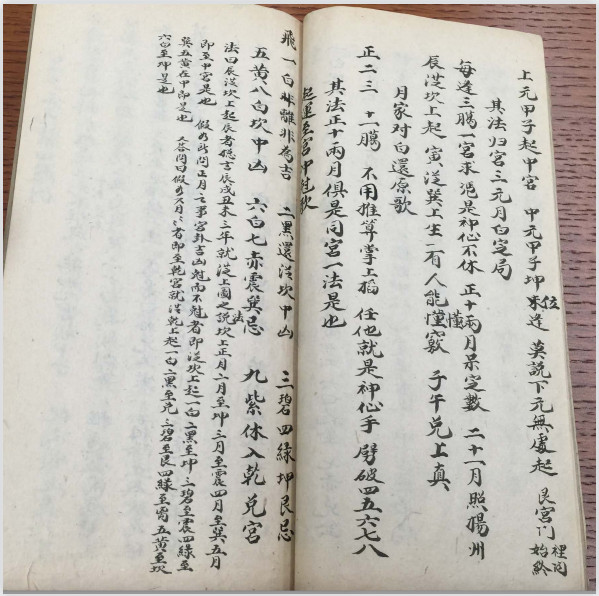 上元甲子起中宮 中元甲子坤位求逢 莫説下元無處起 艮宮门裡问始終
其法归宮三元月白定局
每逢三騰一宮求 便是神仙不休 正十兩月杲定數 二十一月照揚州
辰從坎上起 寅從巽上生 有人能懂竅 子午兑上真
月家对白還原歌
正二三 十一騰 不用推算掌上搯 任他就是神仙手 劈破四五六七八
其法正十兩月俱是同宮一法是也
起運至宮中尅歌
飛一白 離非為吉 二黑還從坎中山 三碧四緑坤艮忌
五黄八白坎中山 六白七赤震巽忌 九紫休入乾兑宮
法曰辰從坎上起辰者總言辰戌丑未三年就從上圖之説法坎上正月二月至坤三月至震四月至巽五月
即至中宮是也 假如所問正月之事宮卦吉凶尅而不尅者即從坎上起一白二黑至坤三碧至震四緑至
巽五黄在中即是也 又答問曰假如又月之者即至乾宮就從乾上起一白二黑至兑三碧至艮四緑至离五黄至坎
六白至坤是也